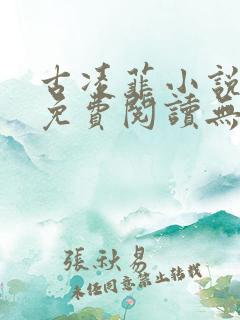 古凌蓝小說
免費閱讀無
張秋易
未经同意禁止转载